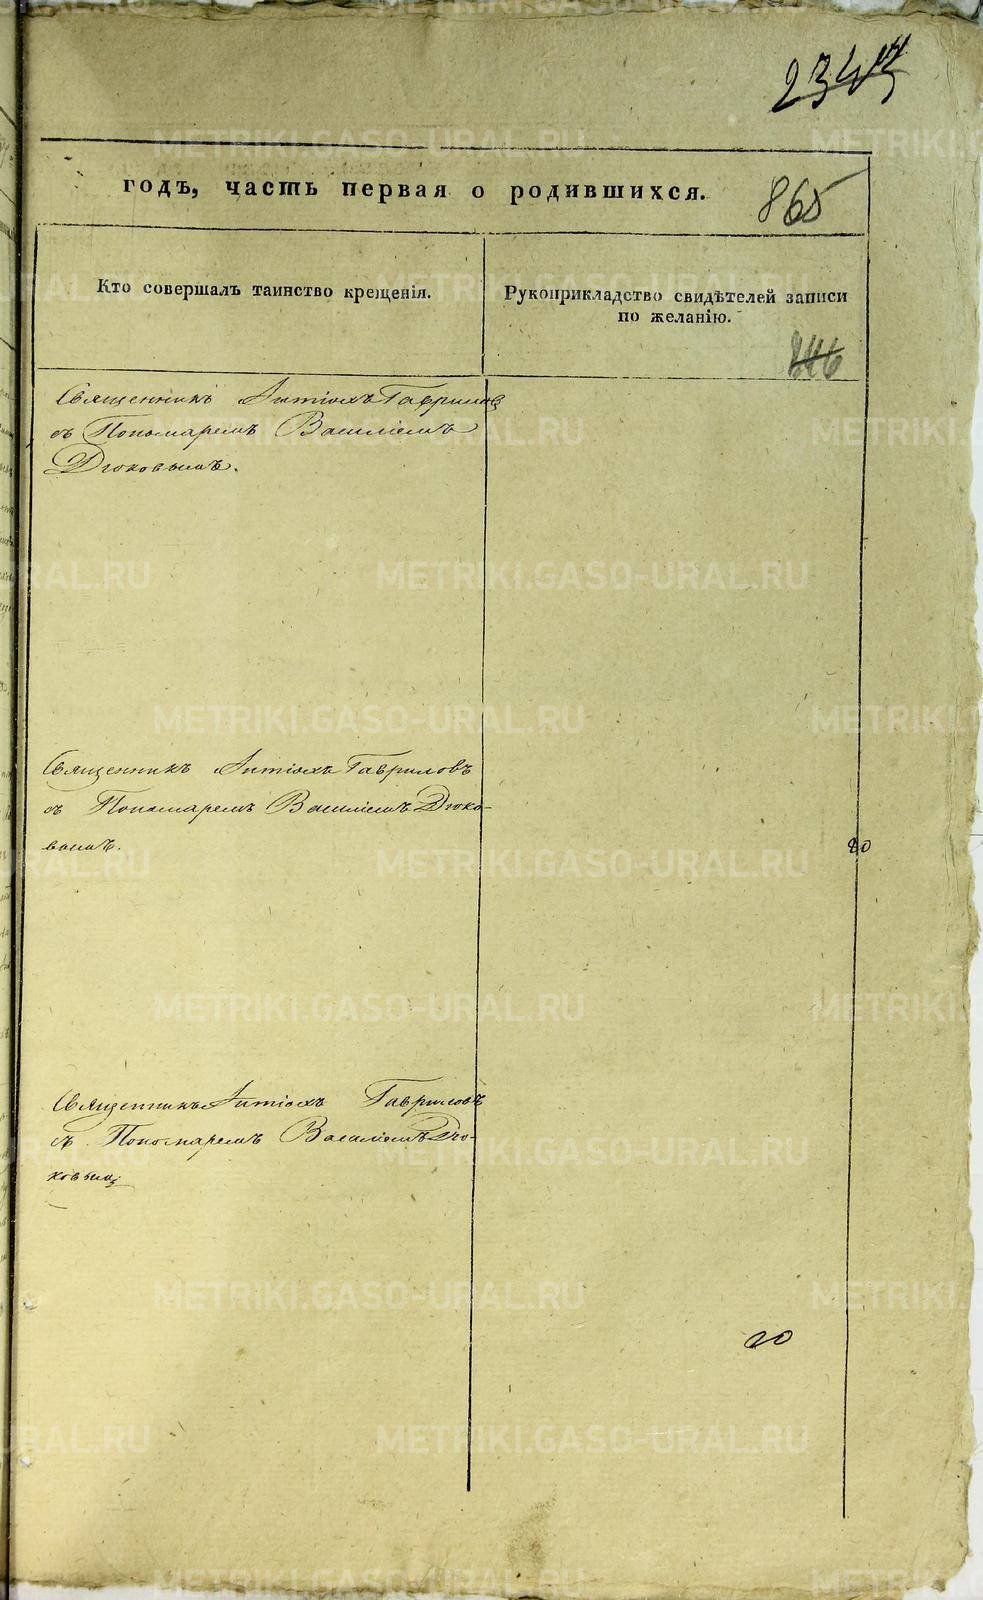 годъ, часть первая о родившихся.
865
Кто совершалъ таинство крещенія.
Рукоприкладство свидѣтелей записи
по желанію.
Священникъ Антіохъ Гавриловъ
съ Пономаремъ Василіемъ
Дюковымъ.
Священникъ Антіохъ Гавриловъ
съ Пономаремъ Василіемъ Дюко-
вымъ.
20
Священникъ Антіохъ Гавриловъ
съ Пономаремъ Василіемъ Дю-
ковымъ
20
METRIKI.GASO-URAL.RU